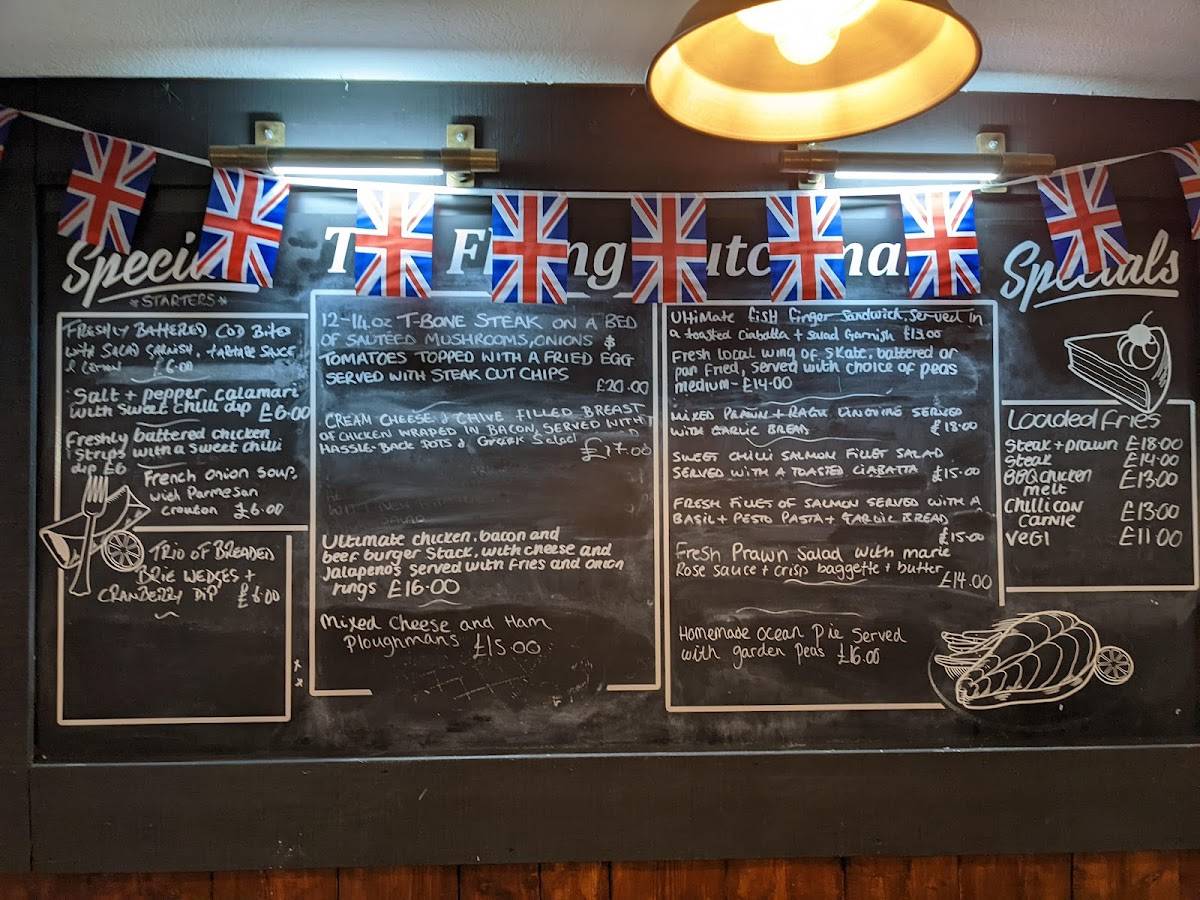 Specials
STARTERS
FRESHLY BATTERED COD BITES
WITH SALAD GARNISH, TARTARE SAUCE
& Lemon £6.00
Salt + pepper calamari
with sweet chilli dip £6.00
Freshly battered chicken
Strips with a sweet chilli
dip £6
French onion soup,
with Parmesan
crouton £6.00
TRIO OF BREADED
BRIE WEDGES +
CRANBERRY DIP £6.00
12-14.oz T-BONE STEAK ON A BED
OF SAUTEED MUSHROOMS, ONIONS &
TOMATOES TOPPED WITH A FRIED EGG
SERVED WITH STEAK CUT CHIPS
£20.00
CREAM CHEESE & CHIVE FILLED BREAST
OF CHICKEN WRAPED IN BACON, SERVED WITH
HASSLE-BACK POTS & Greek Salad
£17.00
Ultimate chicken, bacon and
beef burger Stack, with cheese and
Jalapenos served with fries and onion
rings £16.00
Mixed Cheese and Ham
Ploughmans £15.00
Ultimate fish finger sandwich, served in
a toasted Ciabatta + salad Garnish £13.00
Fresh local wing of Skate, battered or
pan fried, served with choice of peas
medium - £14.00
MIXED PRAWN + RAGU LINGUINE SERVED
WITH GARLIC BREAD £18.00
SWEET CHILLI SALMON FILLET SALAD
SERVED WITH A TOASTED CIABATTA £15.00
FRESH FILLET OF SALMON SERVED WITH A
BASIL + PESTO PASTA + GARLIC BREAD
£15.00
Fresh Prawn salad with marie
Rose sauce + crisp baggette + butter
£14.00
Homemade ocean pie served
with garden peas £16.00
Specials
Loaded fries
Steak + prawn £18.00
Steak £14.00
BBQ chicken £13.00
melt
Chilli con £13.00
carnie
vegi £11.00